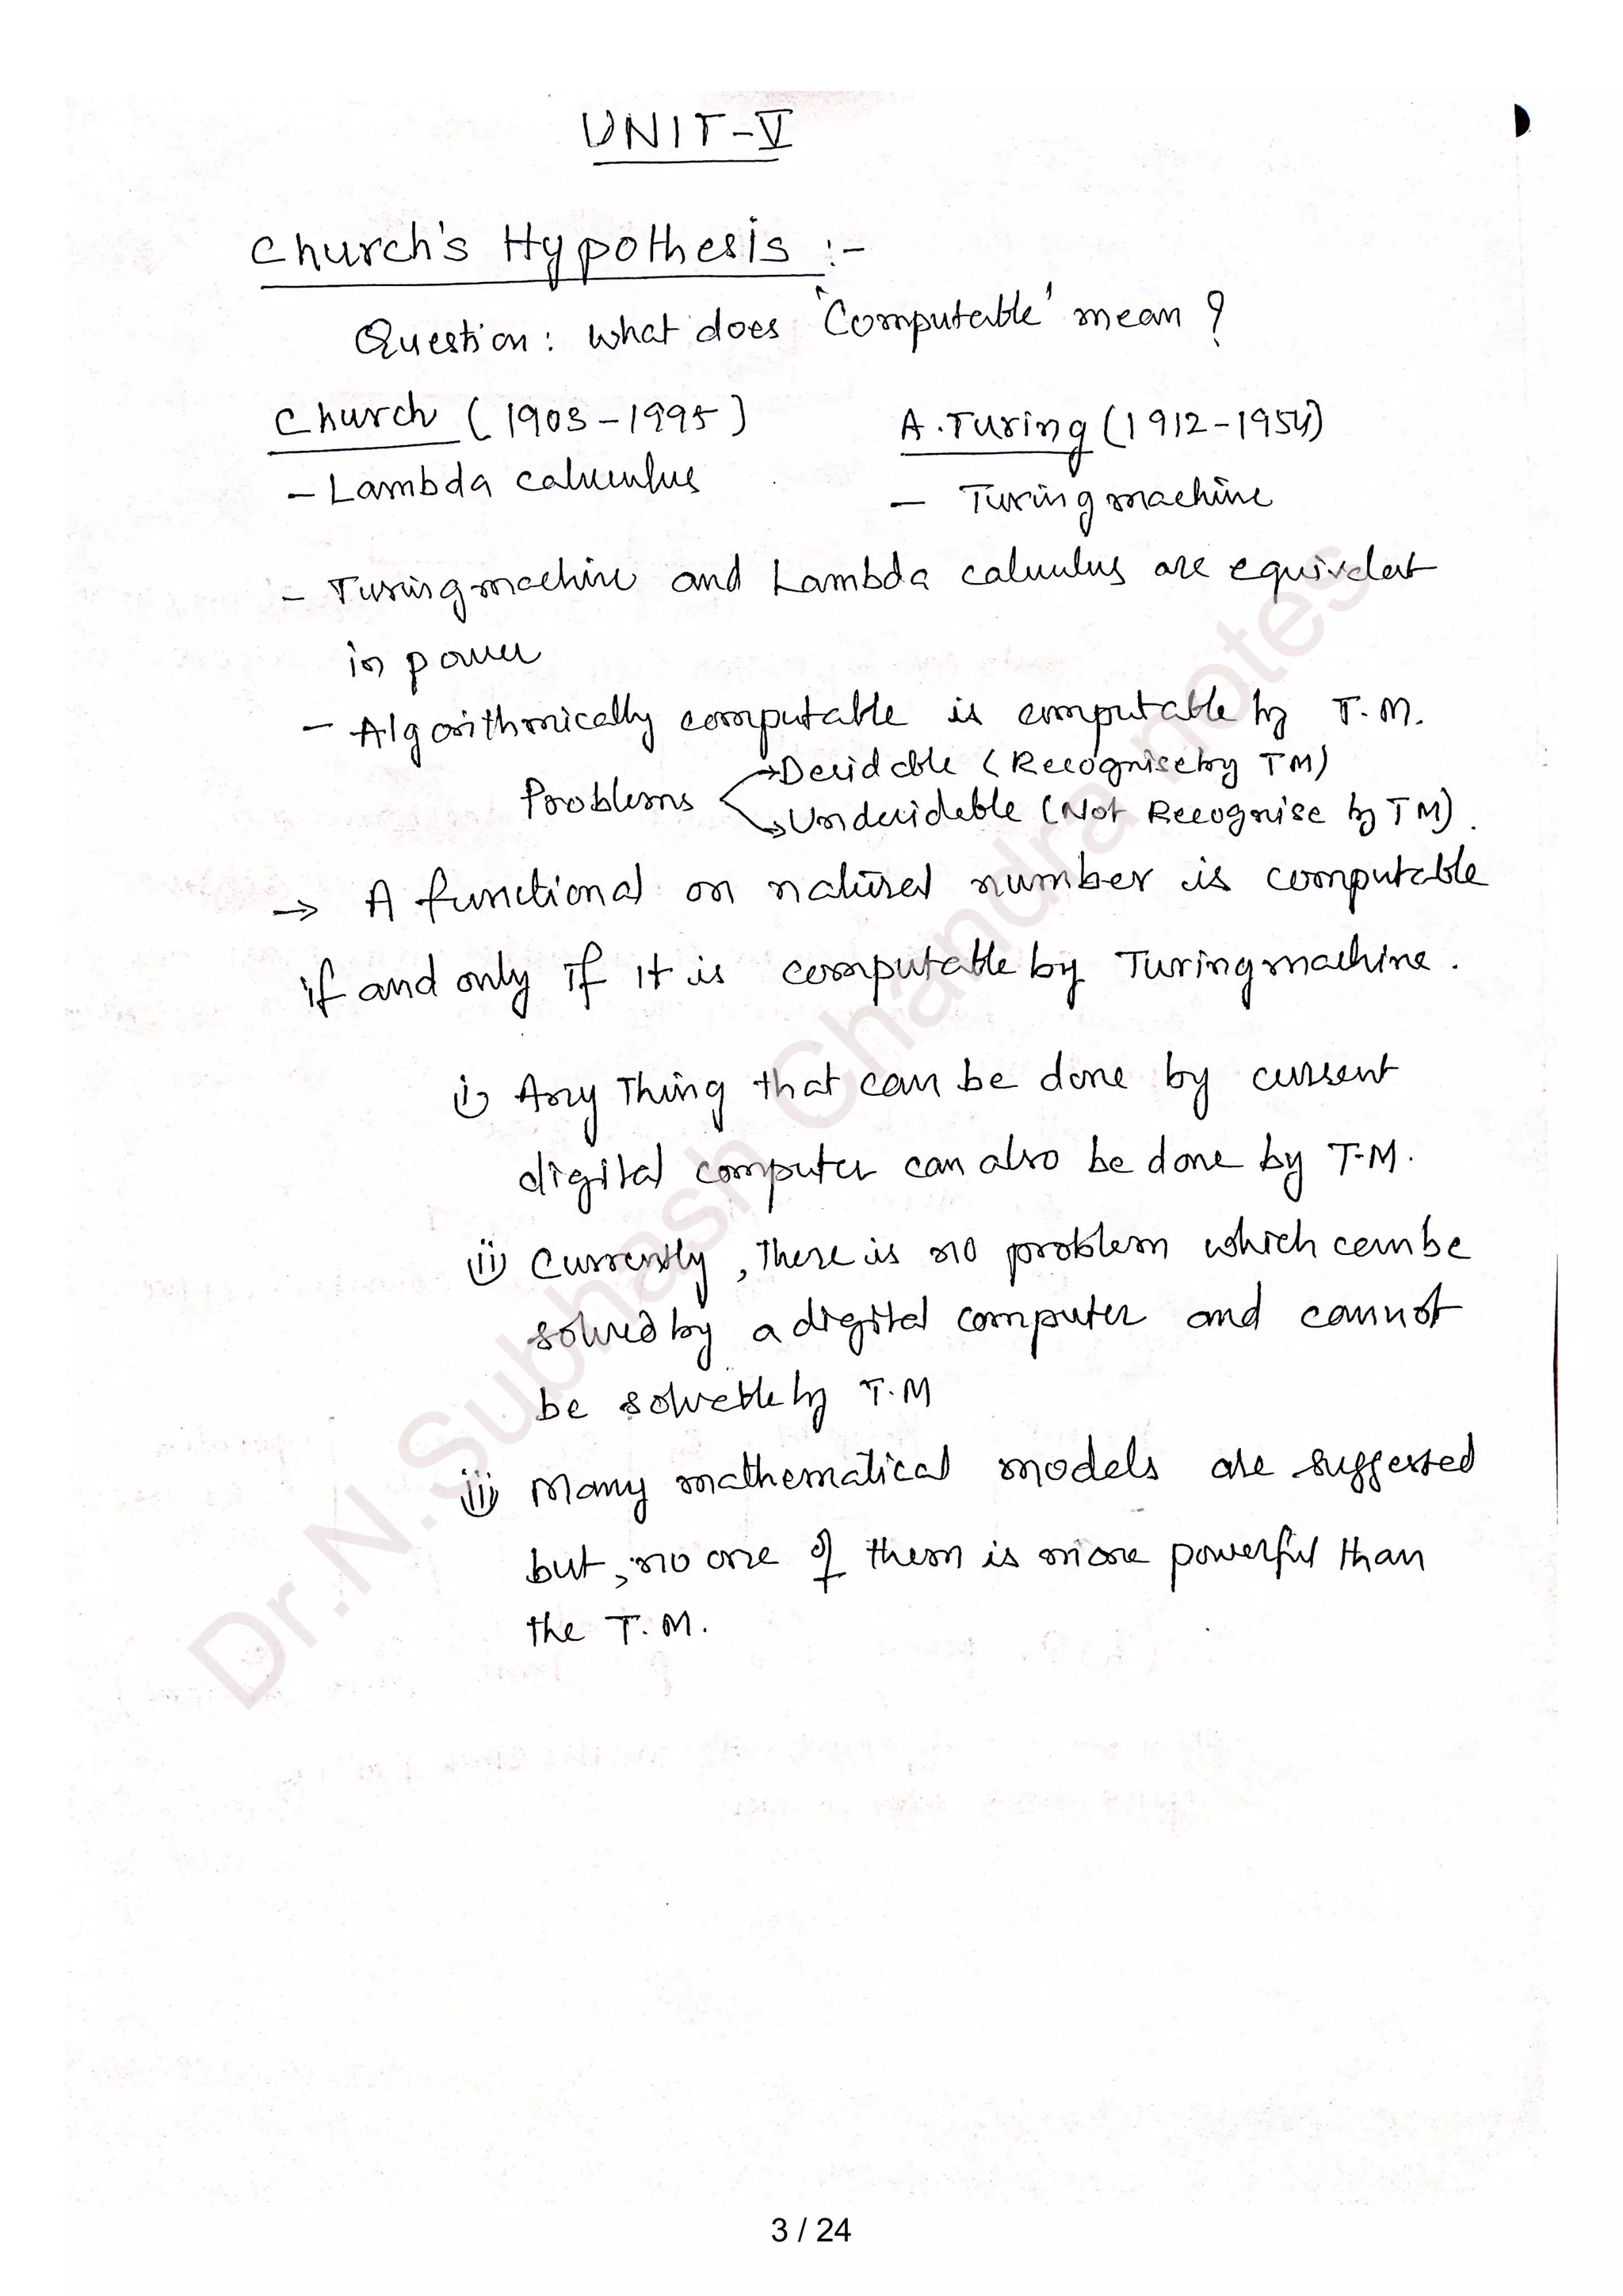 UNIT-V
Church's Hypothesis :-
Question: what does 'Computable' mean ?
Church (1903-1995)
A.Turing (1912-1954)
- Lambda calculus
- Turing machine
- Turing machine and Lambda calculus are equivalent
in power
- Algorithmically computable is computable by T.M.
Problems
→Decidable (Recognise by TM)
→Undecidable (Not Recognise by TM).
→ A functional on natural number is computable
if and only if it is computable by Turing machine.
i) Any Thing that can be done by current
digital computer can also be done by T.M.
ii) Currently, there is no problem which can be
solved by a digital computer and cannot
be solvable by T.M
iii) Many mathematical models are suggested
but, no one of them is more powerful than
the T.M.
Dr.N.Subhash Chandra notes
3 / 24